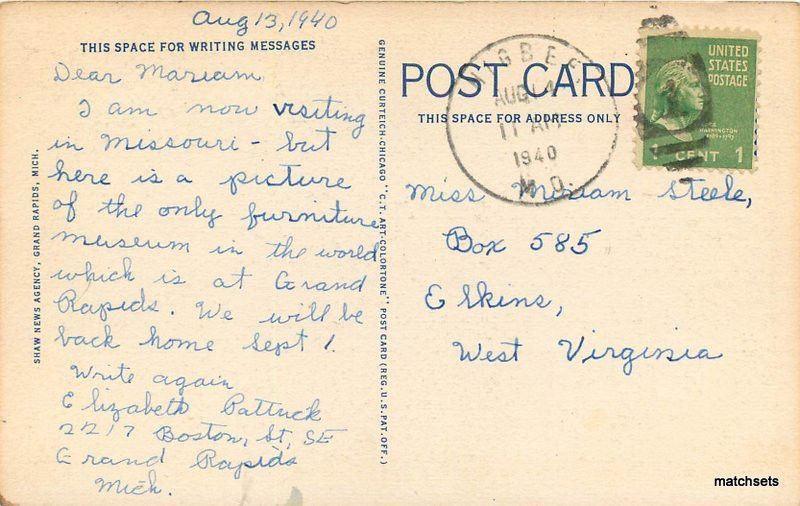 Aug 13, 1940
THIS SPACE FOR WRITING MESSAGES
Dear Mariam
I am now visiting
in Missouri - but
here is a picture
of the only furniture
museum in the world
which is at Grand
Rapids. We will be
back home Sept 1.
Write again
Elizabeth Pattuck
2217 Boston, St, SE
Grand Rapids
Mich.
SHAW NEWS AGENCY, GRAND RAPIDS, MICH.
GENUINE CURTEICH-CHICAGO "C.T. ART-COLORTONE" POST CARD (REG. U.S. PAT. OFF.)
POST CARD
THIS SPACE FOR ADDRESS ONLY
HIGBEE
AUG 14
11 AM
1940
MO.
UNITED
STATES
POSTAGE
WASHINGTON
1 CENT 1
Miss Miriam Steele,
Box 585
Elkins,
West Virginia
matchsets